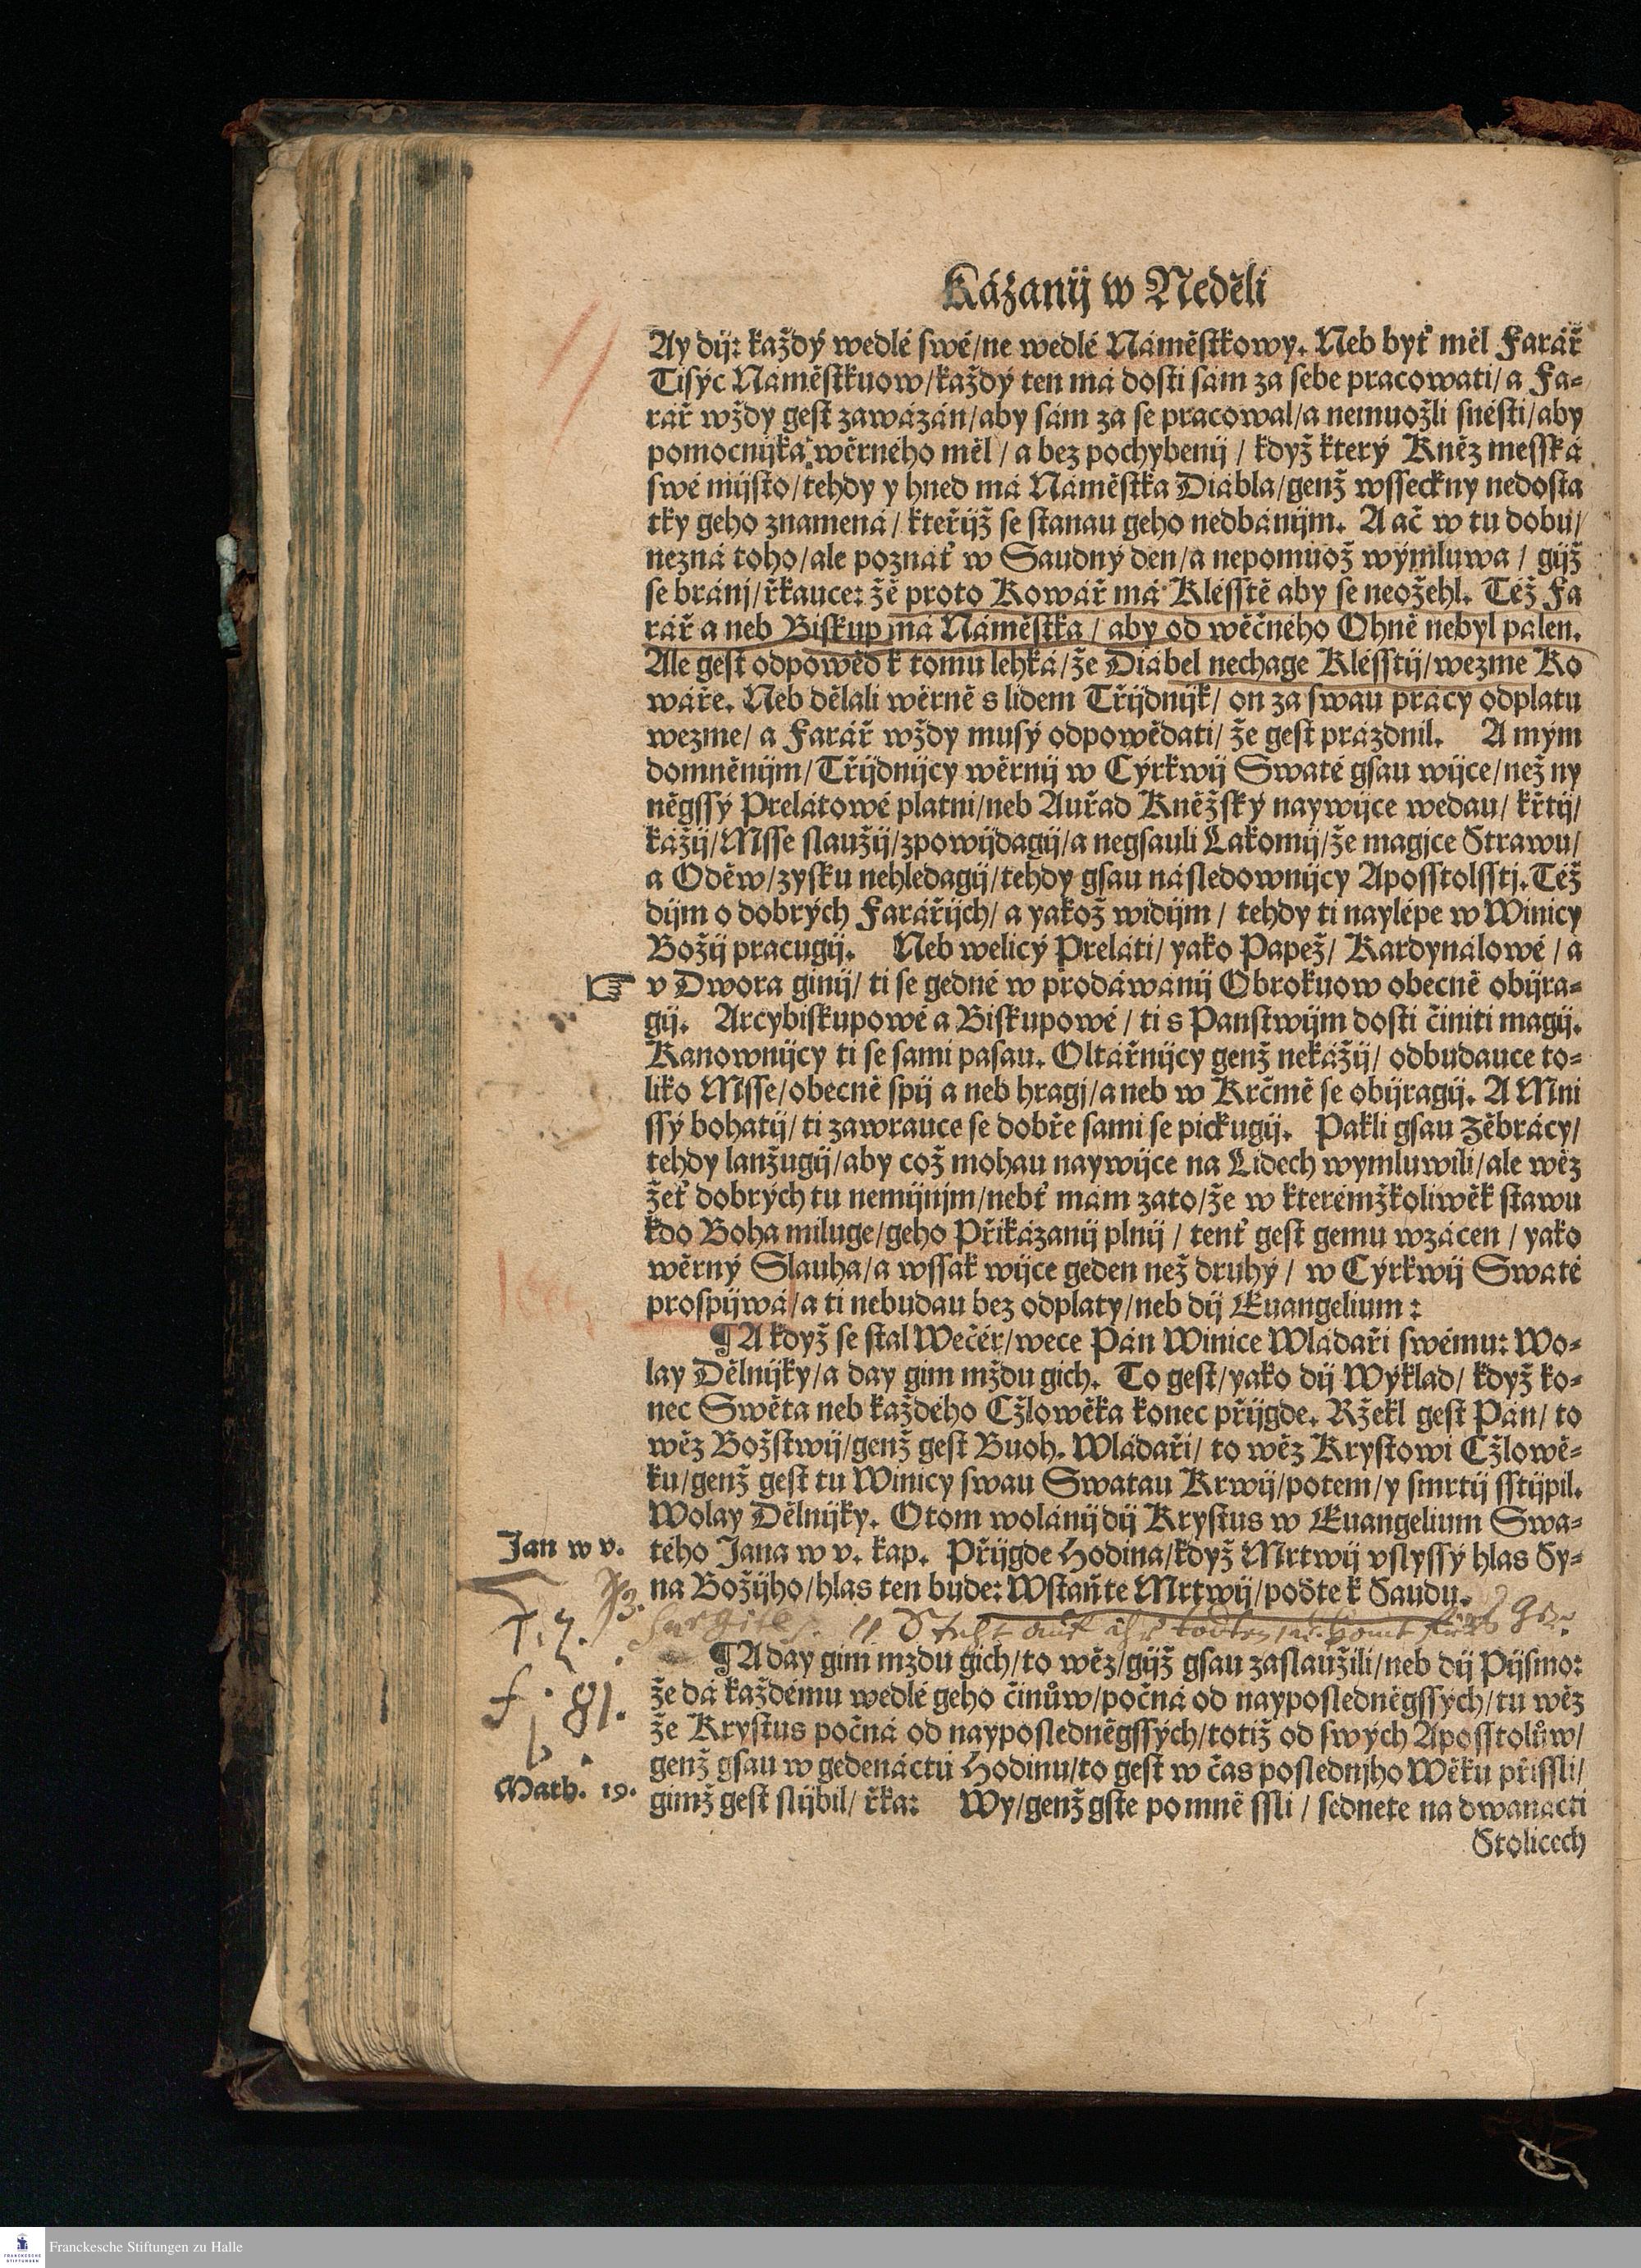 Kázanij w Neděli
Ay dij: každý wedlé swé/ne wedlé Náměstkowy. Neb byť měl Farář
Tisýc Náměstkuow/každý ten má dosti sám za sebe pracowati/a Fa-
rář wždy gest zawázán/aby sám za se pracowal/a nemuožli snésti/aby
pomocnijka wěrného měl/a bez pochybenij/když který Kněz messká
swé mijsto/tehdy y hned má Náměstka Diábla/genž wsseckny nedosta
tky geho znamená/kteřijž se stanau geho nedbánijm. A ač w tu dobu/
nezná toho/ale poznáť w Saudný den/a nepomuož wýmluwa/gijž
se bránj/řkauce: žě proto Kowář má Klésstě aby se neožehl. Též Fa
rář a neb Biskup má Náměstka/aby od wěčného Ohně nebyl pálen.
Ale gest odpowěd k tomu lehká/že Diábel nechage Klésstij/wezme Ko
wáře. Neb dělali wěrně s lidem Třijdnijk/on za swau prácy odplatu
wezme/a Farář wždy musý odpowědati/že gest prázdnil. A mým
domněnijm/Třijdnijcy wěrnij w Cýrkwij Swaté gsau wijce/než ny
něgssý Prelátowé platni/neb Auřad Kněžský naywijce wedau/křtij/
kážij/Msse slaužij/zpowijdagij/a negsauli Lakomij/že magjce Strawu/
a Oděw/zysku nehledagij/tehdy gsau následownijcy Aposstolsstj. Též
dijm o dobrých Farářijch/a yakož widijm/tehdy ti naylépe w Winicy
Božij pracugij. Neb welicý Preláti/yako Papež/Kardynálowé/a
v Dwora ginij/ti se gedné w prodáwánij Obrokuow obecně obijra-
gij. Arcybiskupowé a Biskupowé/ti s Panstwijm dosti činiti magij.
Kanownijcy ti se sami pasau. Oltářnijcy genž nekážij/odbudauce to-
liko Msse/obecně spij a neb hragj/a neb w Krčmě se obijragij. A Mni
ssý bohatij/ti zawrauce se dobře sami se pickugij. Pakli gsau Zěbrácy/
tehdy lanžugij/aby což mohau naywijce na Lidech wymluwili/ale wěz
žeť dobrých tu nemijnjm/nebť mám zato/že w kterémžkoliwěk stawu
kdo Boha miluge/geho Přikázanij plnij/tenť gest gemu wzácen/yako
wěrný Slauha/a wssak wijce geden než druhý/w Cýrkwij Swaté
prospijwá/a ti nebudau bez odplaty/neb dij Euangelium:
¶ A když se stal Wečér/wece Pán Winice Wládaři swému: Wo-
lay Dělnijky/a day gim mždu gich. To gest/yako dij Wýklad/když ko-
nec Swěta neb každého Cžlowěka konec přijgde. Ržekl gest Pán/to
wěz Božstwij/genž gest Buoh. Wládaři/to wěz Krystowi Cžlowě-
ku/genž gest tu Winicy swau Swatau Krwij/potem/y smrtij sstijpil.
Wolay Dělnijky. O tom wolánij dij Krystus w Euangelium Swa-
Jan w v.
tého Jana w v. kap. Přijgde Hodina/když Mrtwij vslyssý hlas Sy-
na Božijho/hlas ten bude: Wstaňte Mrtwij/poďte k Saudu.
Surgite
T. 2.
¶ A day gim mzdu gich/to wěz/gijž gsau zaslaužili/neb dij Pijsmo:
f. 81.
že dá každému wedlé geho činůw/počná od nayposledněgssých/tu wěz
že Krystus počná od nayposledněgssých/totiž od swých Aposstolůw/
b.
genž gsau w gedenáctú Hodinu/to gest w čas poslednjho Wěku přissli/
Math. 19.
gimž gest slijbil/řka: Wy/genž gste po mně ssli/sednete na dwanácti
Stolicech
Franckesche Stiftungen zu Halle